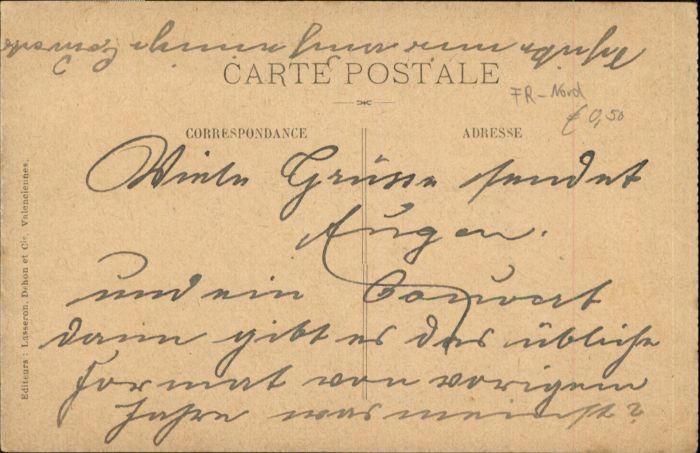 CARTE POSTALE
FR-Nord
€ 0,50
CORRESPONDANCE
ADRESSE
Viele Grüsse sendet
Eugen.
und ein Couvert
dann gibt es das übliche
Format von vorigem
Jahre was meinst?
Editeurs : Lasseron, Dehon et Cie, Valenciennes.